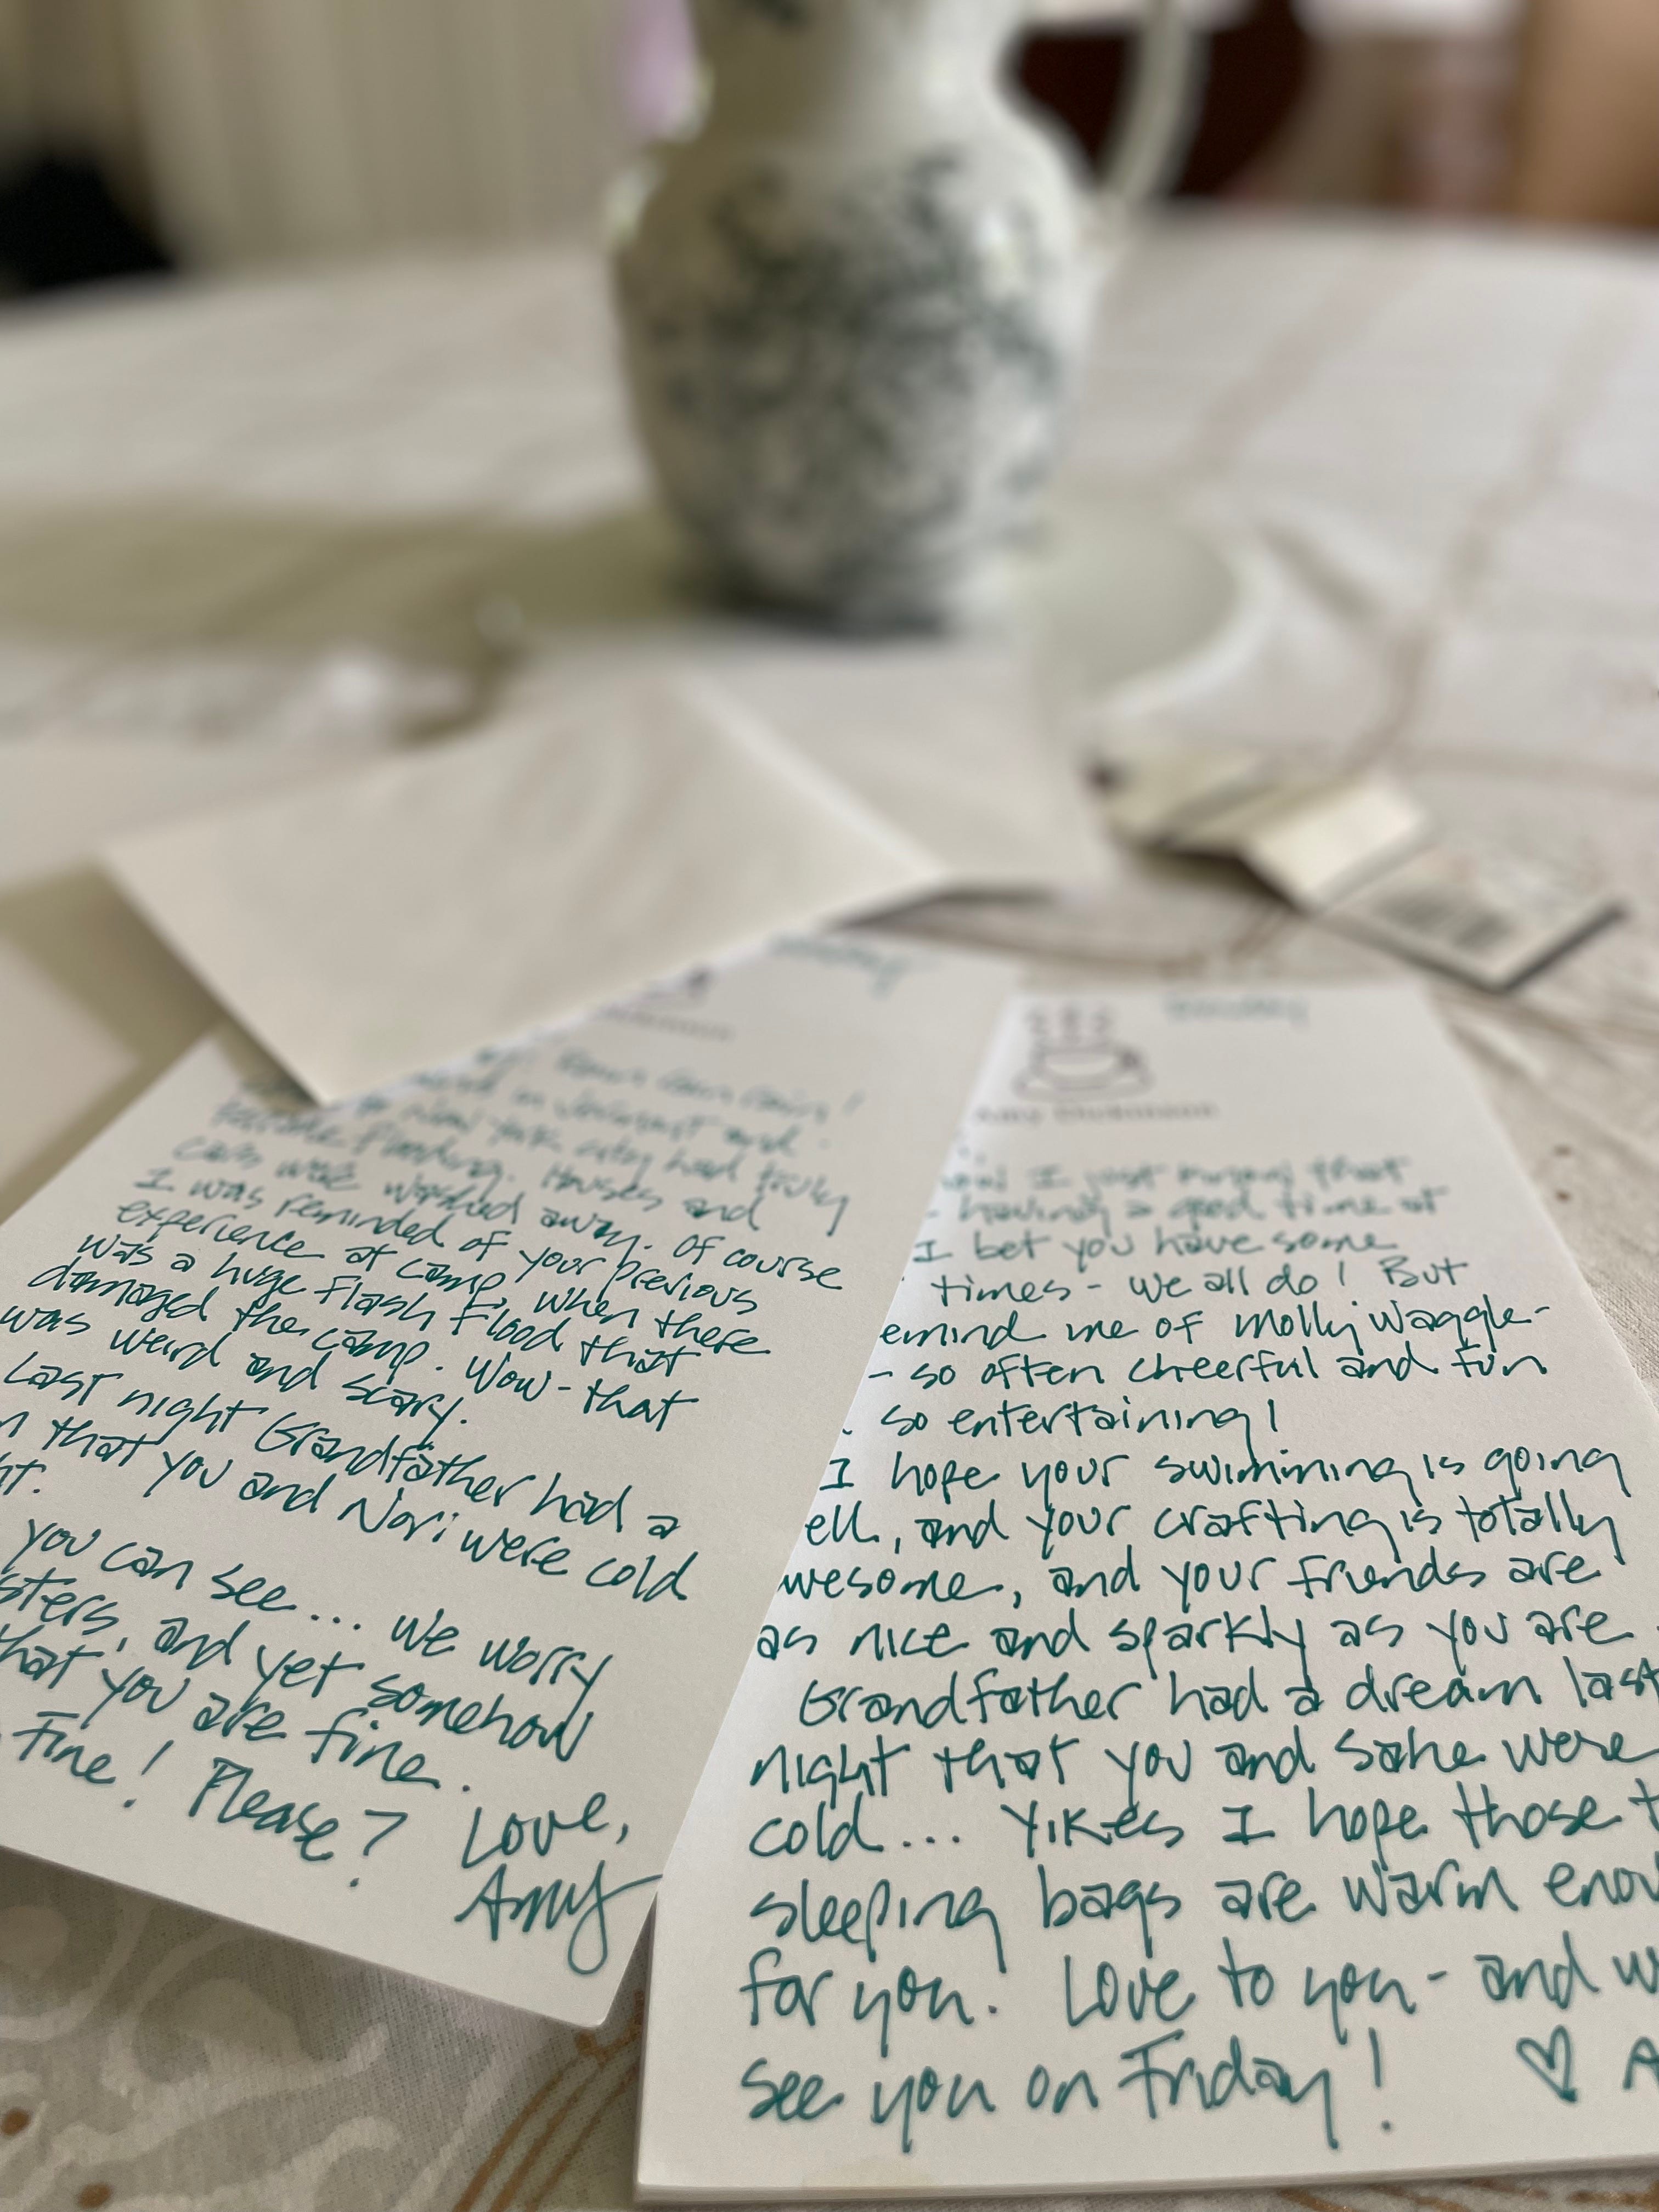 Rain Rain Rain!
in Vermont and
New York City had truly
terrible flooding. Houses and
cars were washed away. Of course
I was reminded of your previous
experience at camp, when there
was a huge flash flood that
damaged the camp. Wow - that
was weird and scary.
Last night Grandfather had a
that you and Nori were cold
you can see... we worry
and yet somehow
that you are fine.
Fine! Please?
Love,
Amy
Sunday
Amy Dickinson
I just know that
having a good time at
I bet you have some
times - we all do! But
emind me of Molly Waggle-
- so often cheerful and fun
so entertaining!
I hope your swimming is going
ell, and your crafting is totally
wesome, and your friends are
as nice and sparkly as you are.
Grandfather had a dream last
night that you and Sahe were
cold... Yikes I hope those t
sleeping bags are warm enou
for you! Love to you - and w
see you on Friday! ♡ A